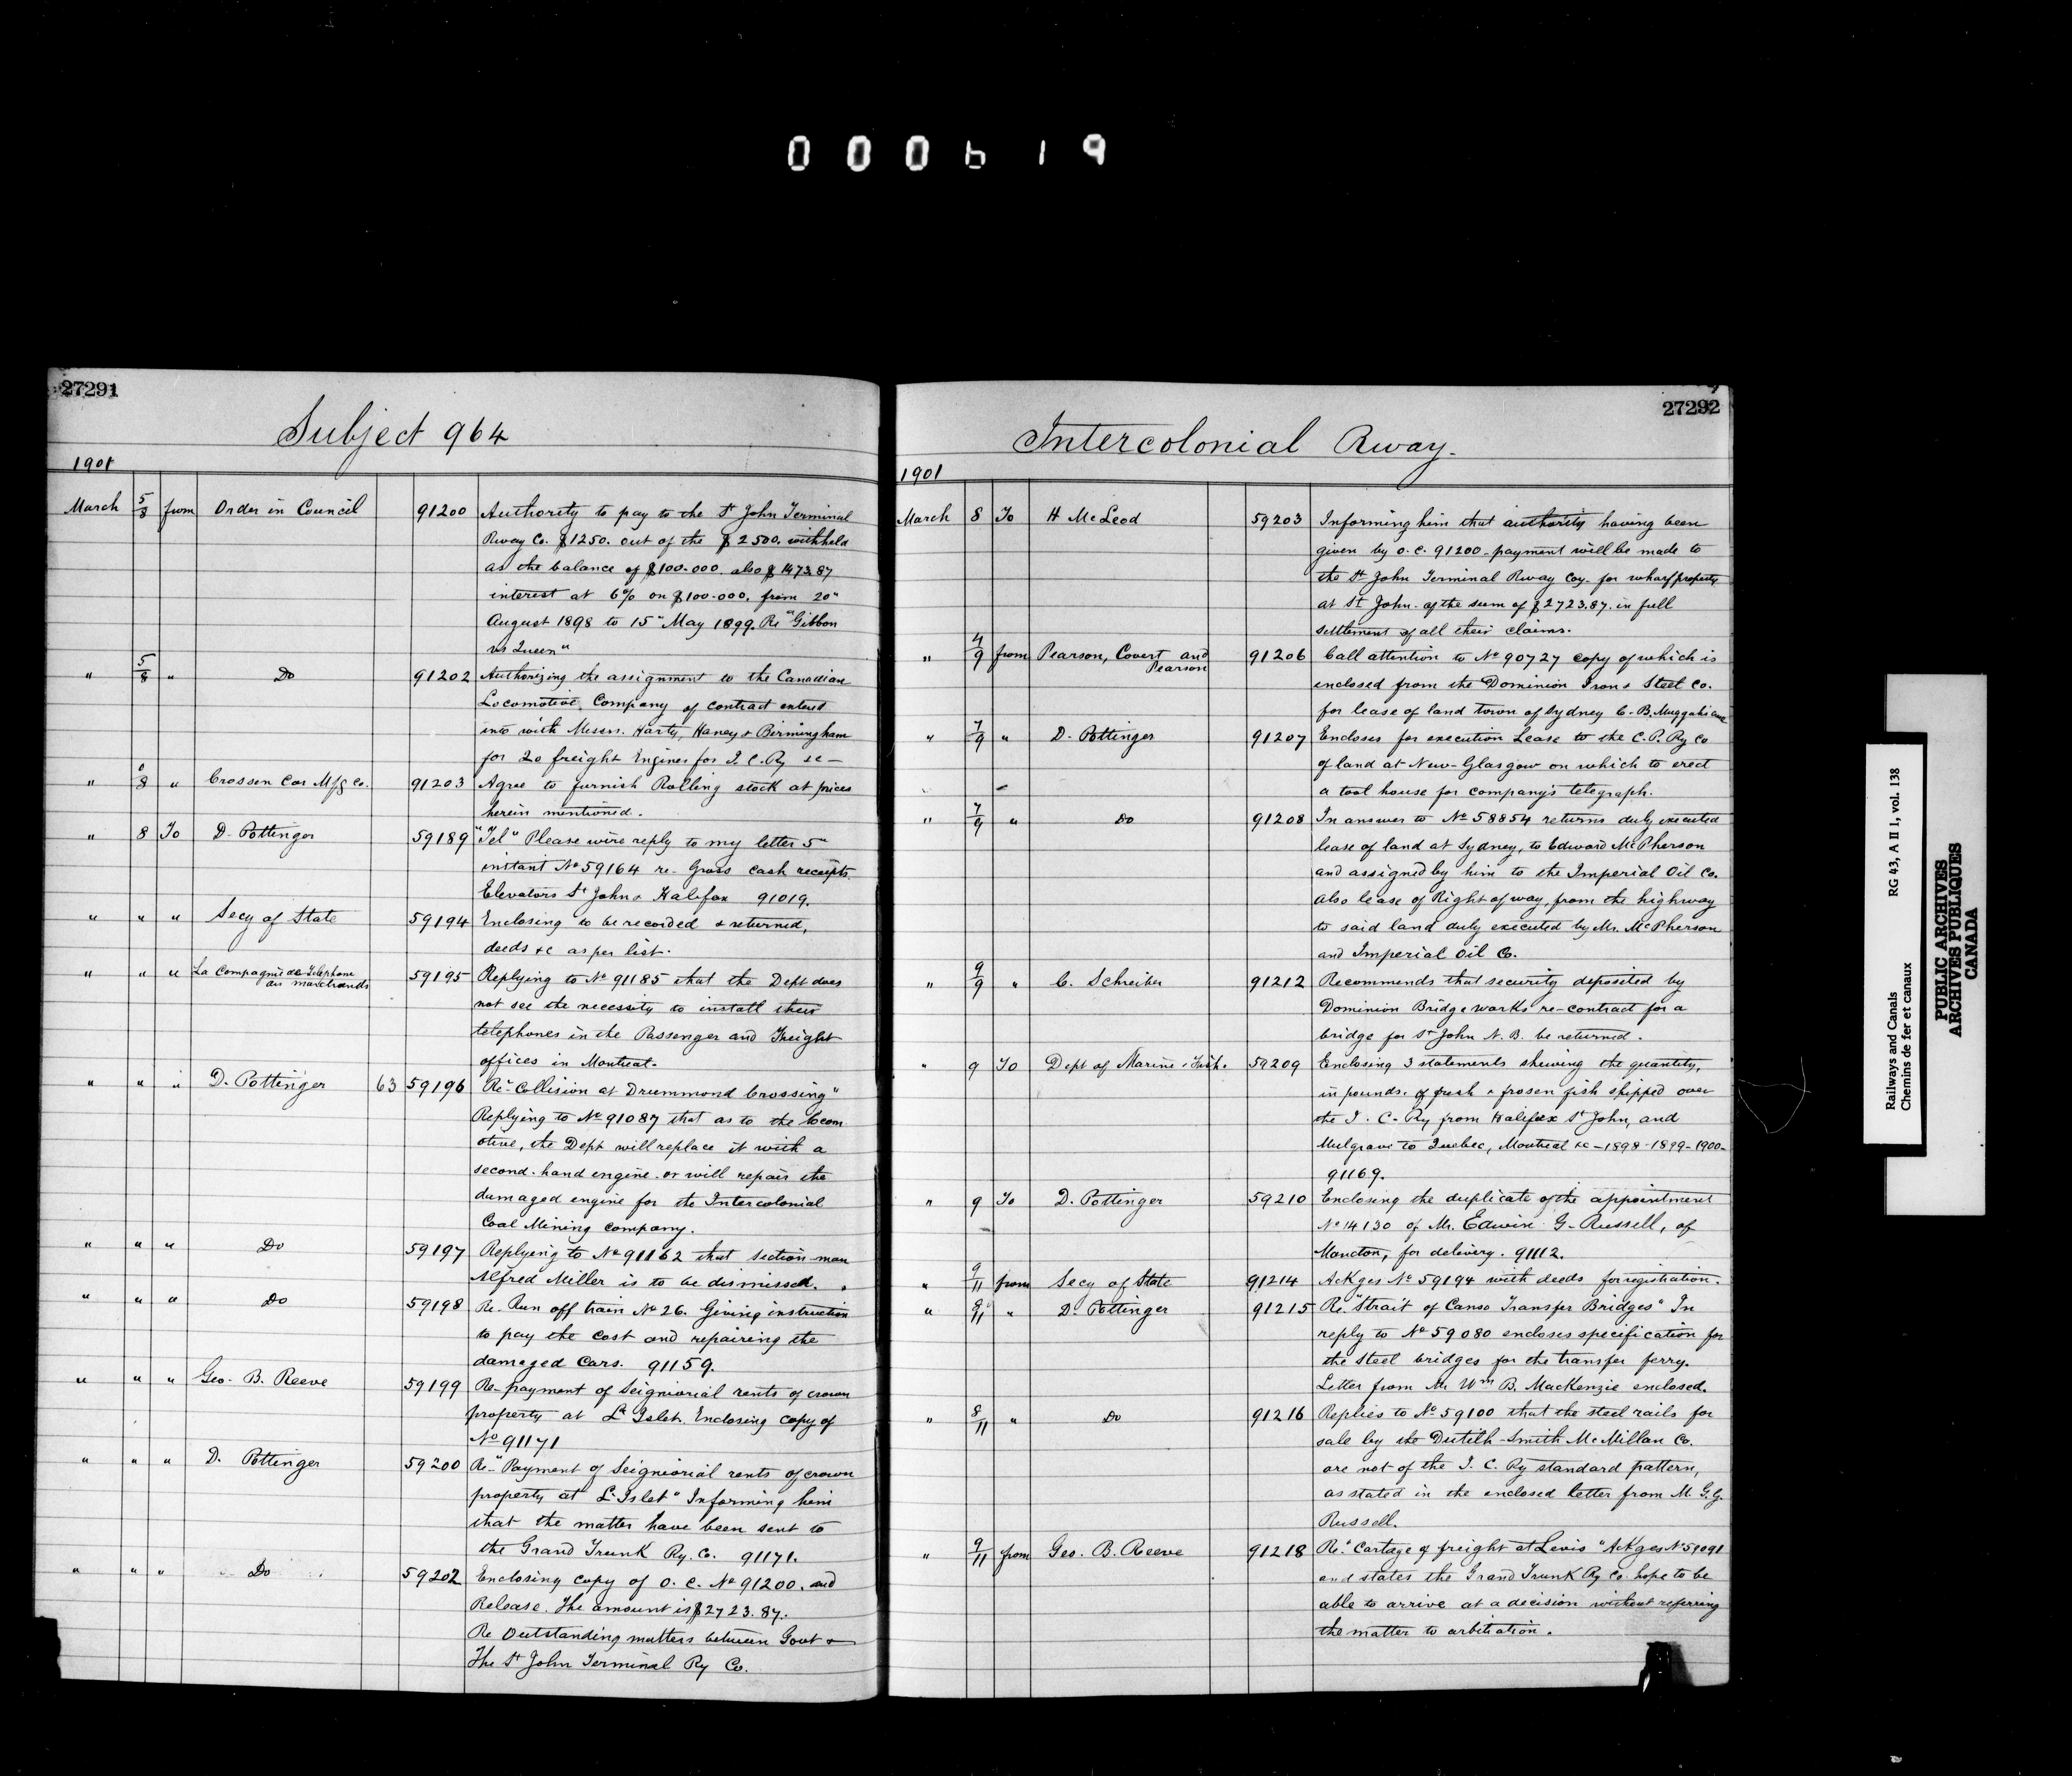 000619
27291
Subject 964
1901
March 5/8 from Order in Council 91200 Authority to pay to the St John Terminal
Rway Co. $1250. out of the $2500. withheld
as the balance of $100.000. also $1473.87
interest at 6% on $100.000. from 20"
August 1898 to 15" May 1899. Re "Gibbon
vs Queen"
" 5/8 " Do 91202 Authorizing the assignment to the Canadian
Locomotive Company of contract entered
into with Messrs. Harty, Haney & Birmingham
for 20 freight Engines for I. C. Ry &c—
" 8 " Crossen Car Mfg Co. 91203 Agree to furnish Rolling stock at prices
herein mentioned.
" 8 To D. Pottinger 59189 "Tel" Please wire reply to my letter 5"
instant No 59164 re- Gross cash receipts
Elevators St John & Halifax 91019.
" " " Secy of State 59194 Enclosing to be recorded & returned,
deeds &c as per list.
" " " La Compagnie de Telephone
des marchands 59195 Replying to No 91185 that the Dept does
not see the necessity to install their
telephones in the Passenger and Freight
offices in Montreal.
" " " D. Pottinger 63 59196 "Re- Collision at Drummond Crossing"
Replying to No 91087 that as to the locom
otive, the Dept will replace it with a
second-hand engine or will repair the
damaged engine for the Intercolonial
Coal Mining Company.
" " " Do 59197 Replying to No 91162 that section-man
Alfred Miller is to be dismissed.
" " " Do 59198 Re- Run off train No 26. Giving instruction
to pay the cost and repairing the
damaged Cars. 91159.
" " " Geo. B. Reeve 59199 Re- payment of Seigniorial rents of crown
property at L'Islet. Enclosing copy of
No 91171
" " " D. Pottinger 59200 Re- "Payment of Seigniorial rents of crown
property at L'Islet" Informing him
that the matter have been sent to
the Grand Trunk Ry. Co. 91171.
" " " Do 59202 Enclosing copy of O. C. No 91200. and
Release. The amount is $2723.87.
Re Outstanding matters between Govt &
The St John Terminal Ry Co.
27292
Intercolonial Rway.
1901
March 8 To H McLeod 59203 Informing him that authority having been
given by O. C. 91200 - payment will be made to
the St John Terminal Rway Coy. for wharf property
at St John. of the sum of $2723.87. in full
settlement of all their claims.
" 4/9 from Pearson, Covert and
Pearson 91206 Call attention to No 90727 copy of which is
enclosed from the Dominion Iron & Steel Co.
for lease of land town of Sydney C. B. Muggahs
" 7/9 " D. Pottinger 91207 Encloses for execution Lease to the C. P. Ry Co
of land at New-Glasgow on which to erect
a tool house for company's telegraph.
" 7/9 " Do 91208 In answer to No 58854 returns duly executed
lease of land at Sydney, to Edward McPherson
and assigned by him to the Imperial Oil Co.
also lease of Right of way, from the highway
to said land duly executed by Mr. McPherson
and Imperial Oil Co.
" 9/9 " C. Schreiber 91212 Recommends that security deposited by
Dominion Bridge works re-contract for a
bridge for St John N. B. be returned.
" 9 To Dept of Marine & Fish. 59209 Enclosing 3 statements shewing the quantity,
in pounds. of fresh & frosen fish shipped over
the I. C. Ry from Halifax St John, and
Mulgrave to Quebec, Montreal &c - 1898-1899-1900-
91169.
" 9 To D. Pottinger 59210 Enclosing the duplicate of the appointment
No 14130 of Mr. Edwin G. Russell, of
Moncton, for delivery. 91112.
" 9/11 from Secy of State 91214 Ackges No 59194 with deeds for registration.
" 9/11 " D. Pottinger 91215 Re. "Strait of Canso Transfer Bridges" In
reply to No 59080 encloses specification for
the steel bridges for the transfer ferry.
Letter from Mr Wm B. MacKenzie enclosed.
" 8/11 " Do 91216 Replies to No 59100 that the steel rails for
sale by the Dutilh-Smith McMillan Co.
are not of the I. C. Ry standard pattern,
as stated in the enclosed letter from M. G. G.
Russell.
" 9/11 from Geo. B. Reeve 91218 Re. "Cartage of freight at Levis" Ackges No 59091
and states the Grand Trunk Ry Co. hope to be
able to arrive at a decision without referring
the matter to arbitration.
Railways and Canals RG 43, A II 1, vol. 138
Chemins de fer et canaux
PUBLIC ARCHIVES
ARCHIVES PUBLIQUES
CANADA